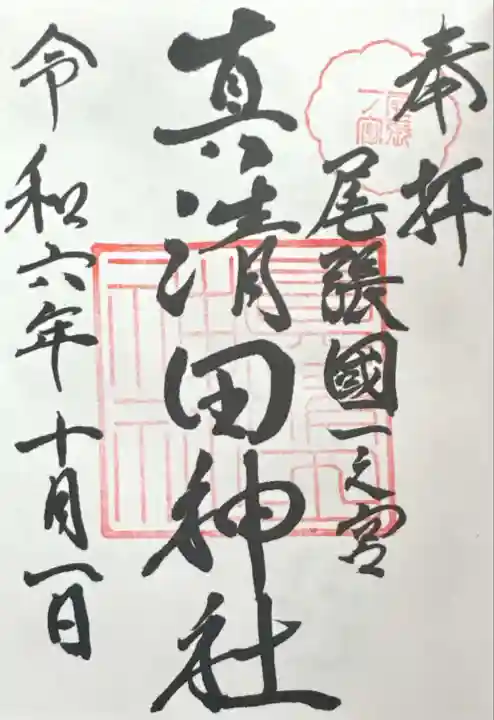 奉拝
尾張國一之宮
尾張
一ノ宮
真清田神社
令和六年十月一日